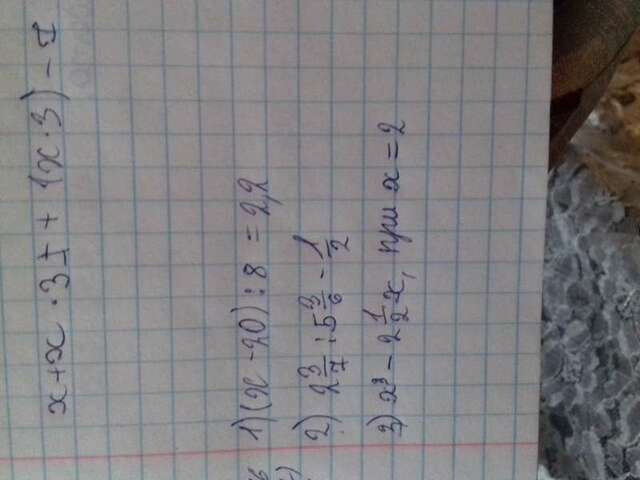 x+x · 3I + (x·3) - I
1)(x - 20) : 8 = 2,2
2) 2 3/7 : 5 3/6 - 1/2
3) x³ - 2 1/2 x, при x = 2